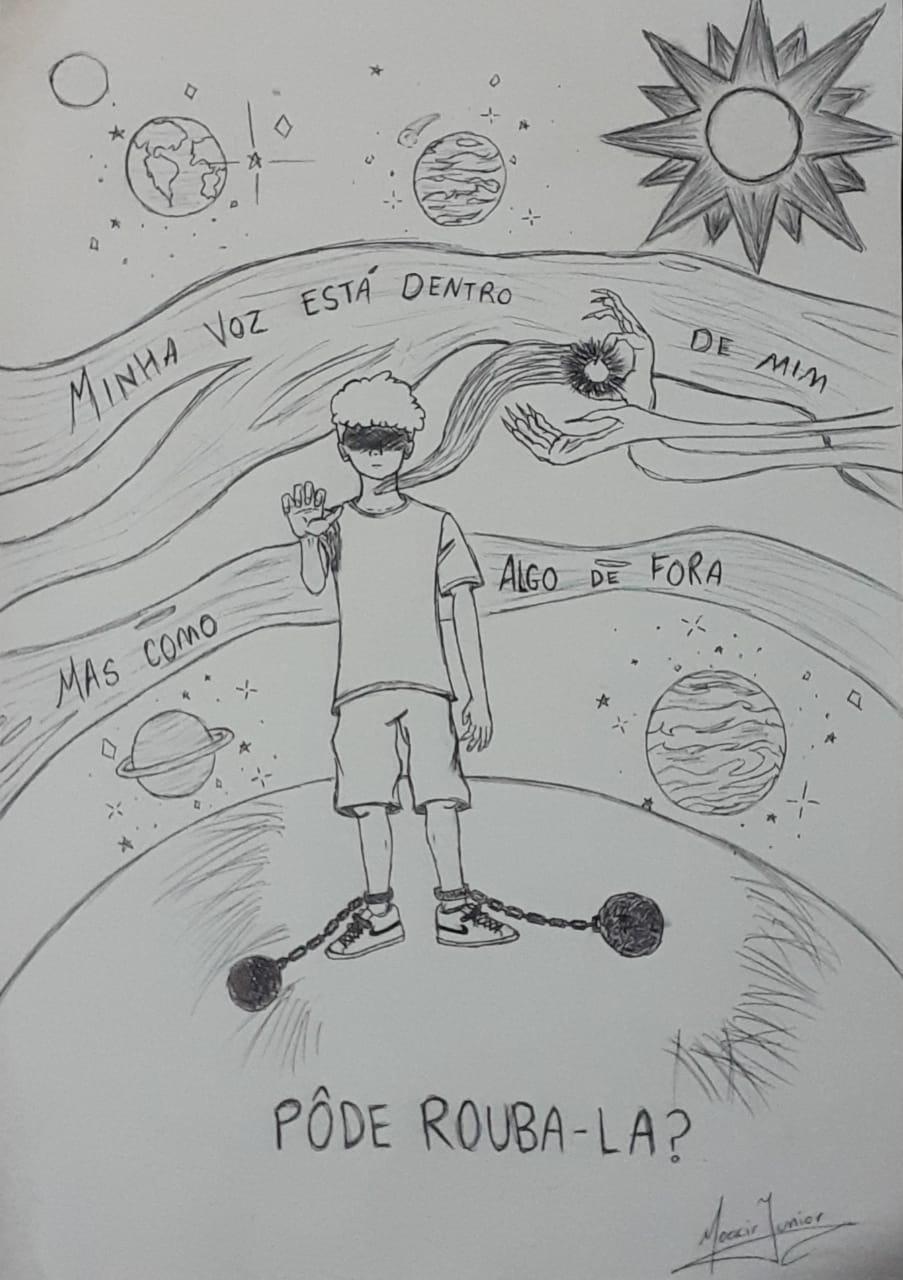 MINHA VOZ ESTÁ DENTRO DE MIM
MAS COMO ALGO DE FORA
PÔDE ROUBA-LA?
Moacir Junior